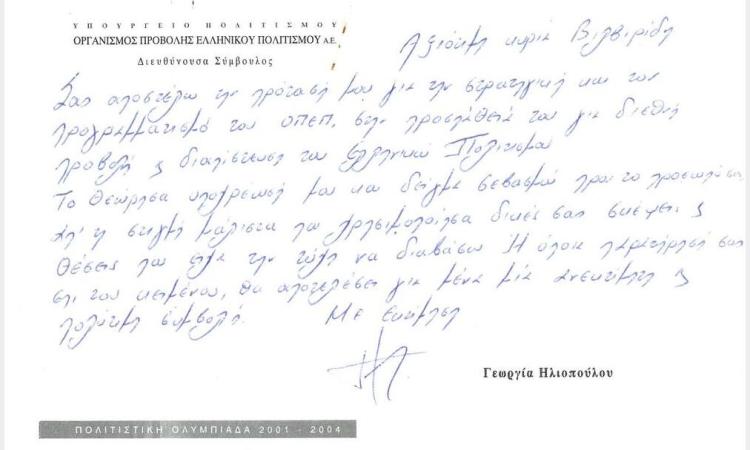 ΥΠΟΥΡΓΕΙΟ ΠΟΛΙΤΙΣΜΟΥ
ΟΡΓΑΝΙΣΜΟΣ ΠΡΟΒΟΛΗΣ ΕΛΛΗΝΙΚΟΥ ΠΟΛΙΤΙΣΜΟΥ Α.Ε.
Διευθύνουσα Σύμβουλος
Αξιότιμη κυρία
Σας αποστέλλω την πρότασή μου για την στρατηγική και τον
προγραμματισμό του ΟΠΕΠ, στην προσπάθειά του για διεθνή
προβολή & διαπίστευση του Ελληνικού Πολιτισμού
Το θεώρησα υποχρέωσή μου και δείγμα σεβασμού προς το πρόσωπό σας
απ' τη στιγμή μάλιστα που χρησιμοποίησα δικές σας σκέψεις &
θέσεις που είχα την τύχη να διαβάσω. Η όποια παρατήρησή σας
επί του κειμένου, θα αποτελέσει για μένα μία ανεκτίμητη &
πολύτιμη συμβολή. Με εκτίμηση
Γεωργία Ηλιοπούλου
ΠΟΛΙΤΙΣΤΙΚΗ ΟΛΥΜΠΙΑΔΑ 2001 - 2004